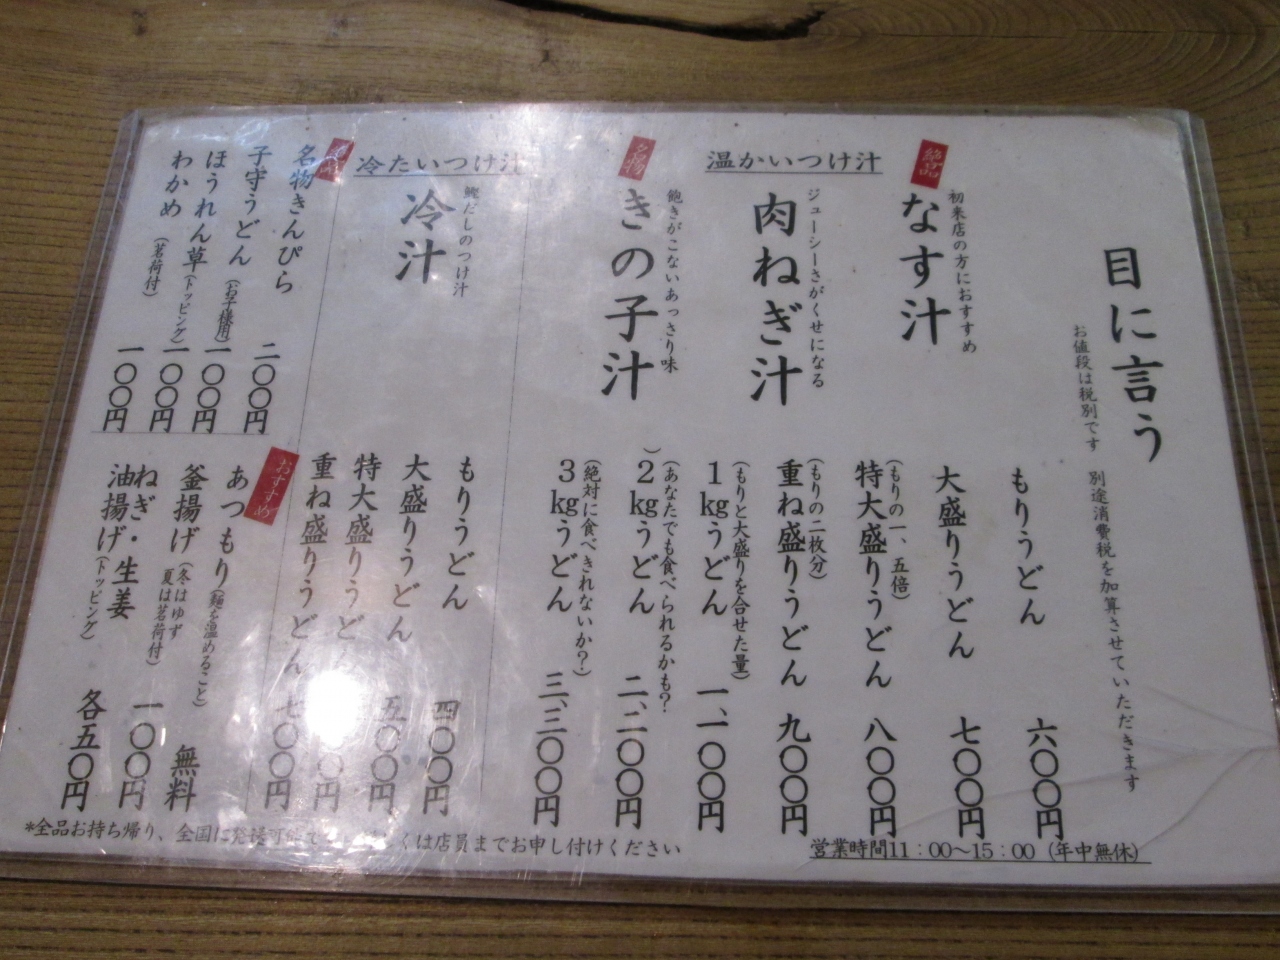 目に言う
お値段は税別です 別途消費税を加算させていただきます
温かいつけ汁
絶品
初来店の方におすすめ
なす汁
ジューシーさがくせになる
肉ねぎ汁
名物
飽きがこないあっさり味
きの子汁
もりうどん 六〇〇円
大盛りうどん 七〇〇円
(もりの一、五倍)
特大盛りうどん 八〇〇円
(もりの二枚分)
重ね盛りうどん 九〇〇円
(もりと大盛りを合せた量)
1㎏うどん 一、一〇〇円
(あなたでも食べられるかも?)
2㎏うどん 二、二〇〇円
(絶対に食べきれないか?)
3㎏うどん 三、三〇〇円
冷たいつけ汁
鰹だしのつけ汁
冷汁
もりうどん 四〇〇円
大盛りうどん 五〇〇円
特大盛りうどん 〇円
重ね盛りうどん 七〇〇円
名物きんぴら 二〇〇円
子守うどん(お子様用) 一〇〇円
ほうれん草(トッピング) 一〇〇円
わかめ(茗荷付) 一〇〇円
おすすめ
あつもり(麺を温めること) 無料
釜揚げ(冬はゆず 夏は茗荷付) 一〇〇円
ねぎ・生姜
油揚げ(トッピング) 各五〇円
*全品お持ち帰り、全国に発送可能で くは店員までお申し付けください
営業時間11:00～15:00 (年中無休)